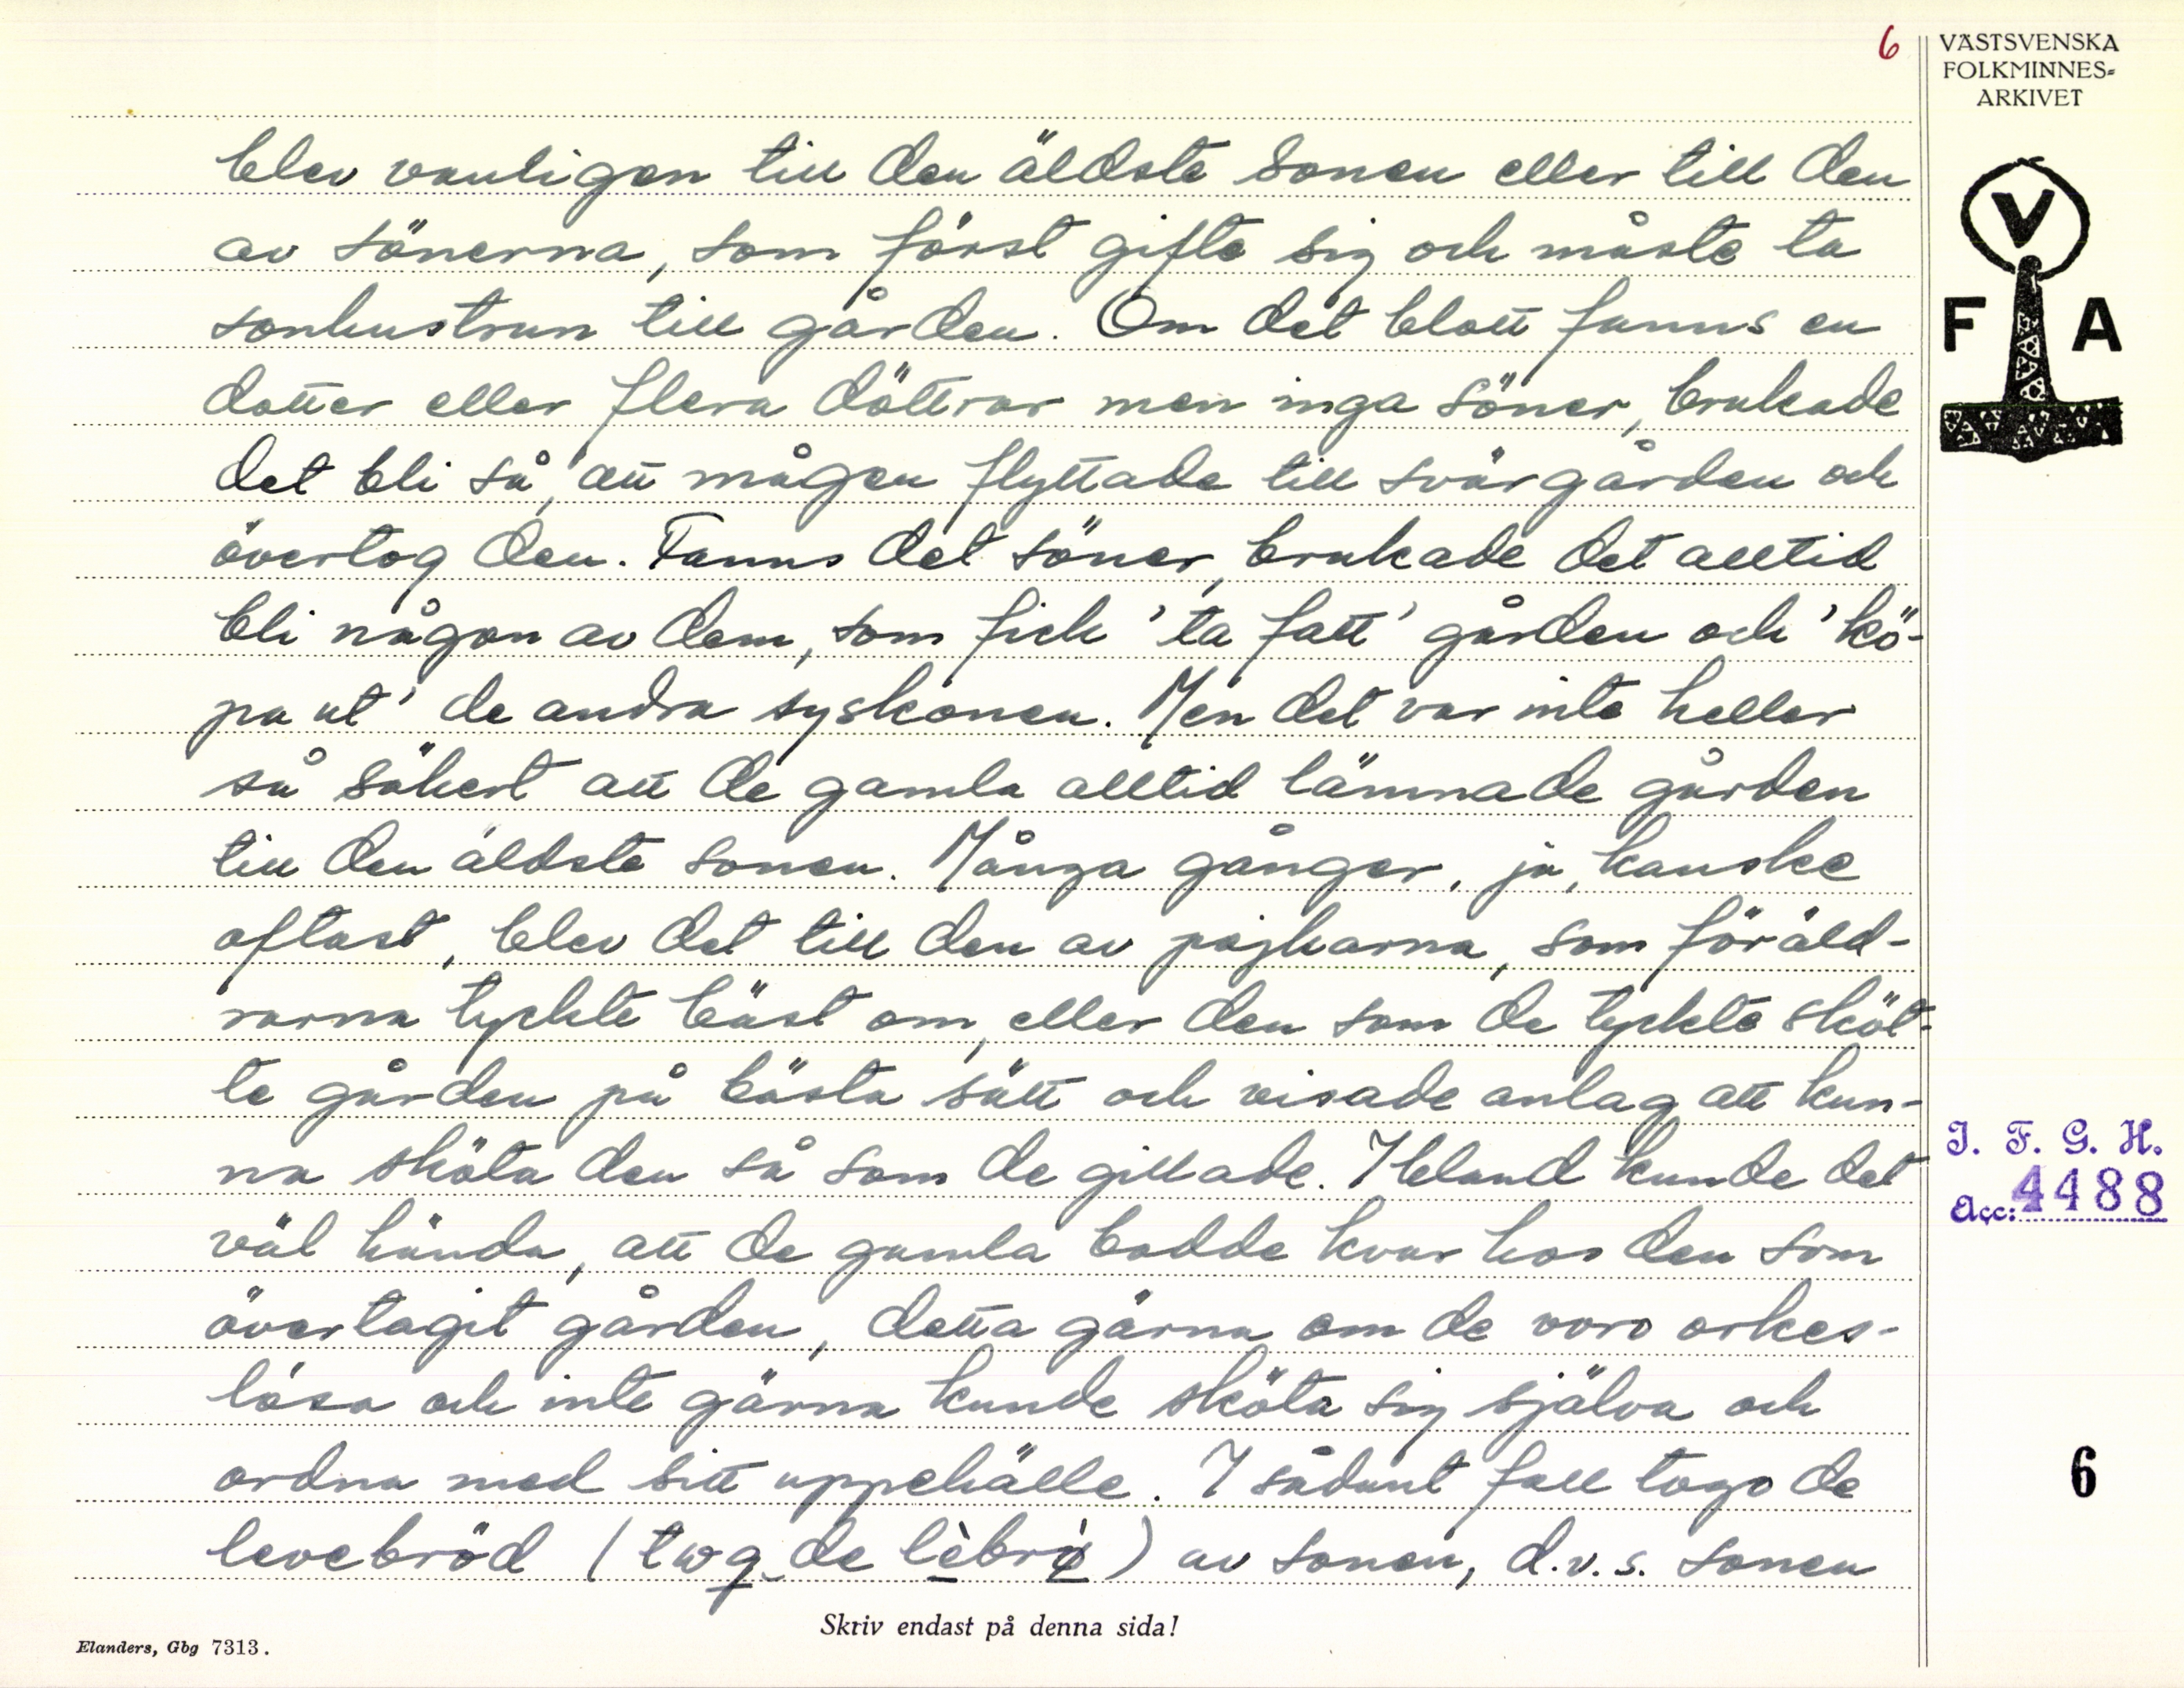 6
VÄSTSVENSKA
FOLKMINNES=
ARKIVET
V
F A
blev vanligen till den äldste sonen eller till den
av sönerna, som först gifte sig och måste ta
sonhustrun till gården. Om det blott fanns en
dotter eller flera döttrar men inga söner, brukade
det bli så, att mågen flyttade till svärgården och
övertog den. Fanns det söner, brukade det alltid
bli någon av dem, som fick 'ta fatt' gården och 'kö-
pa ut' de andra syskonen. Men det var inte heller
så säkert att de gamla alltid lämnade gården
till den äldste sonen. Många gånger, ja, kanske
oftast, blev det till den av pojkarna, som föräld-
rarna tyckte bäst om, eller den som de tyckte sköt-
te gården på bästa sätt och visade anlag att kun-
na sköta den så som de gillade. Ibland kunde det
väl hända, att de gamla bodde kvar hos den som
övertagit gården, detta gärna om de voro orkes-
lösa och inte gärna kunde sköta sig själva och
ordna med sitt uppehälle. I sådant fall togo de
levebröd ( de ) av sonen, d.v.s. sonen
I. F. G. H.
Acc: 4488
6
Skriv endast på denna sida!
Elanders, Gbg 7313.